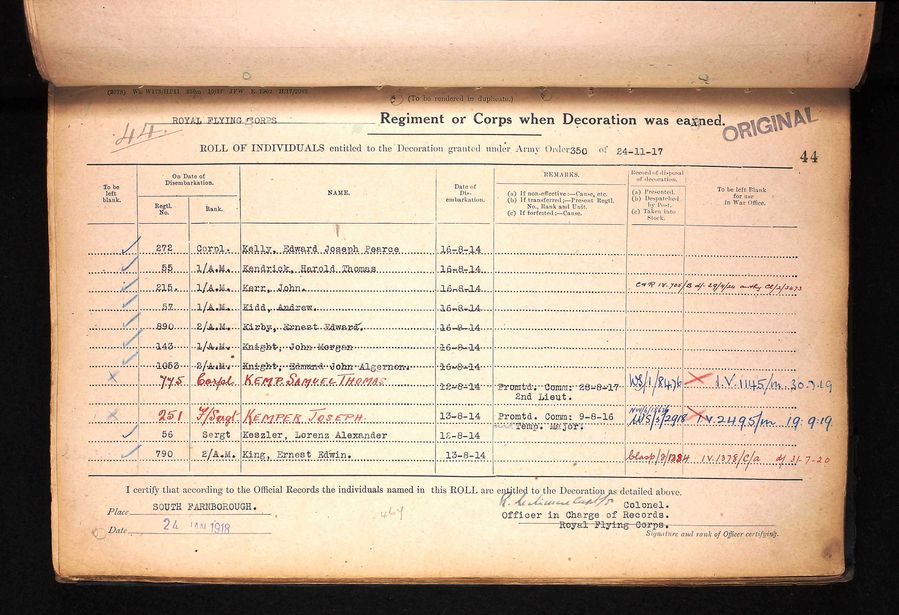 (To be rendered in duplicate.)
44. ROYAL FLYING CORPS Regiment or Corps when Decoration was earned.
ORIGINAL
ROLL OF INDIVIDUALS entitled to the Decoration granted under Army Order 350 of 24-11-17
44
To be left blank. On Date of Disembarkation. Regtl. No. Rank. NAME. Date of Disembarkation. REMARKS. (a) If non-effective:—Cause, etc. (b) If transferred:—Present Regtl. No., Rank and Unit. (c) If forfeited:—Cause. Record of disposal of decoration. (a) Presented. (b) Despatched by Post. (c) Taken into Stock. To be left Blank for use in War Office.
272 Corpl. Kelly, Edward Joseph Pearce 16-8-14
55 1/A.M. Kendrick, Harold Thomas 16-8-14
215. 1/A.M. Kerr, John. 16-8-14
57 1/A.M. Kidd, Andrew. 16-8-14
890 2/A.M. Kirby, Ernest Edward. 16-8-14
143 1/A.M. Knight, John Morgan 16-8-14
1053 2/A.M. Knight, Edmund John Algernon. 16-8-14
775 Corpl KEMP. SAMUEL THOMAS 12-8-14 Promtd. Comm: 28-8-17 WS/1/8476 I.V.1145/m. 30.7.19
2nd Lieut.
251 F/Sergt. KEMPER JOSEPH. 13-8-14 Promtd. Comm: 9-8-16 IV2495/m 19.9.19
Temp. Major.
56 Sergt Keszler, Lorenz Alexander 12-8-14
790 2/A.M. King, Ernest Edwin. 13-8-14 Clasp/2/1284 IV.1378/C/a d/ 31-7-20
I certify that according to the Official Records the individuals named in this ROLL are entitled to the Decoration as detailed above.
Place SOUTH FARNBOROUGH. Colonel.
Officer in Charge of Records.
Date 24 JAN 1918 Royal Flying Corps.
Signature and rank of Officer certifying.